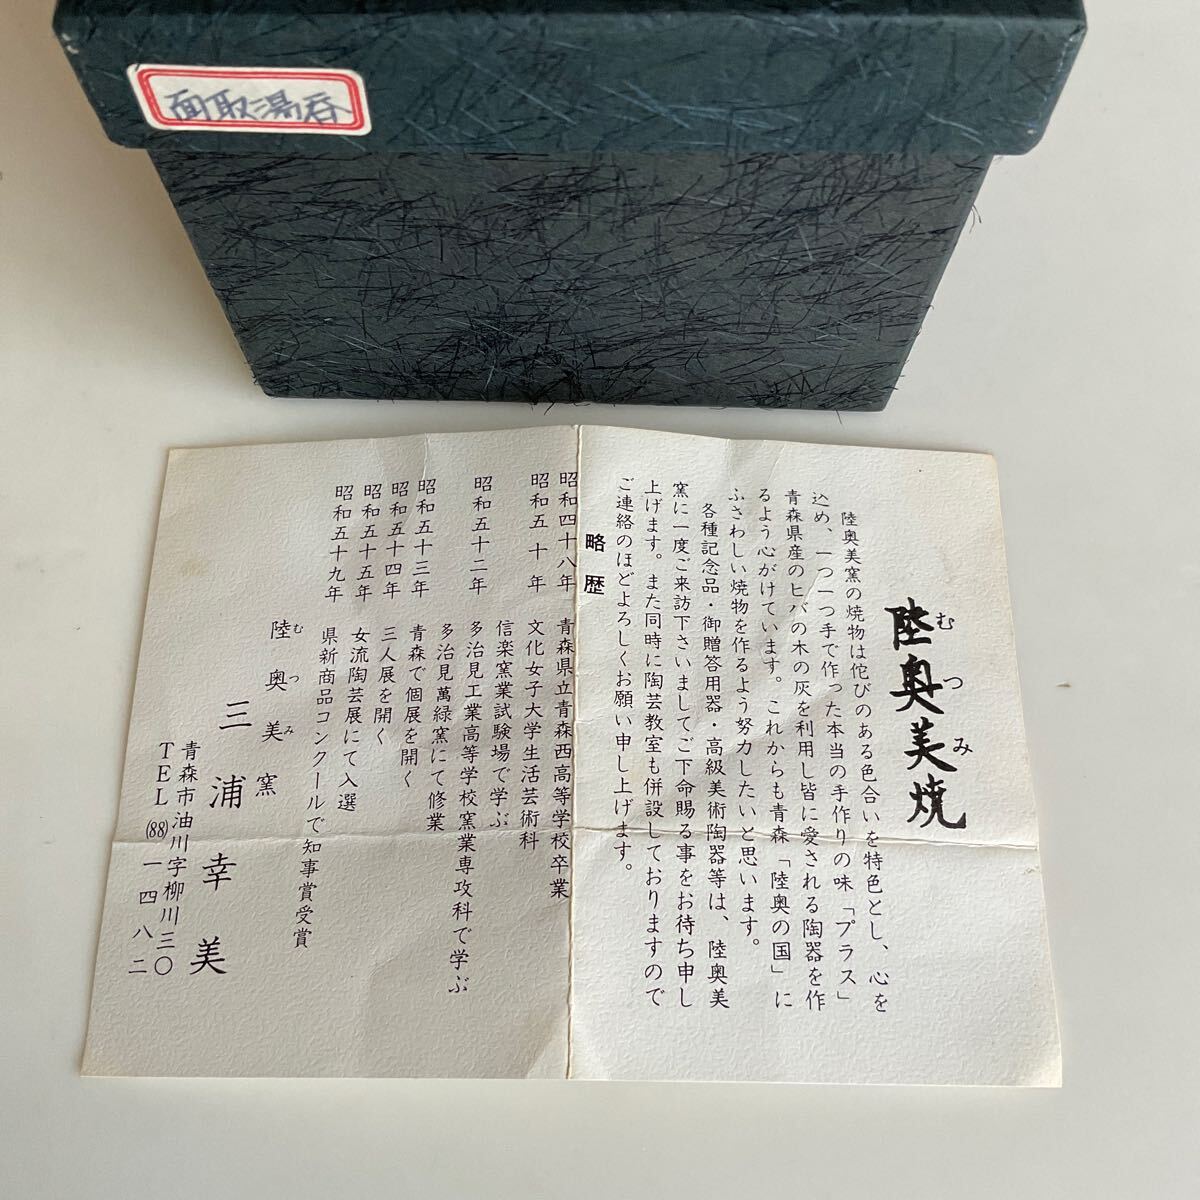 面取湯呑
陸奥美焼
むつみ
陸奥美窯の焼物は佗びのある色合いを特色とし、心を
込め、一つ一つ手で作った本当の手作りの味「プラス」
青森県産のヒバの木の灰を利用し皆に愛される陶器を作
るよう心がけています。これからも青森「陸奥の国」に
ふさわしい焼物を作るよう努力したいと思います。
各種記念品・御贈答用器・高級美術陶器等は、陸奥美
窯に一度ご来訪下さいましてご下命賜る事をお待ち申し
上げます。また同時に陶芸教室も併設しておりますので
ご連絡のほどよろしくお願い申し上げます。
略歴
昭和四十八年 青森県立青森西高等学校卒業
昭和五十年 文化女子大学生活芸術科
信楽窯業試験場で学ぶ
昭和五十二年 多治見工業高等学校窯業専攻科で学ぶ
多治見萬緑窯にて修業
昭和五十三年 青森で個展を開く
昭和五十四年 三人展を開く
昭和五十五年 女流陶芸展にて入選
昭和五十九年 県新商品コンクールで知事賞受賞
陸奥美窯
むつみ
三浦幸美
青森市油川字柳川三〇
TEL(88)一四八二